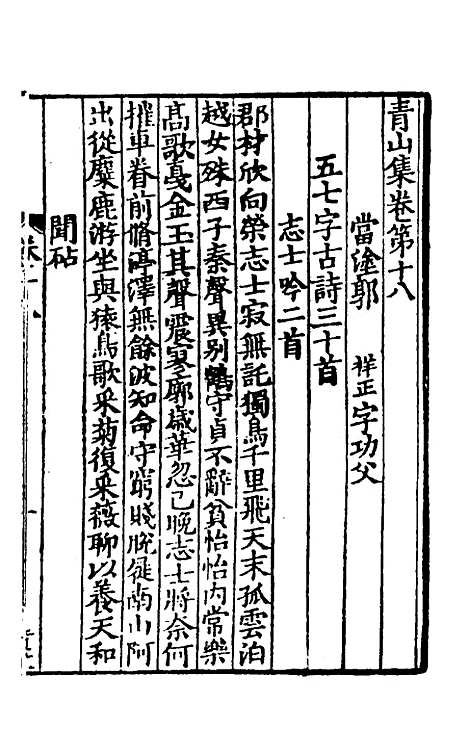 青山集卷第十八
當塗郭 祥正 字功父
五七字古詩三十首
志士吟二首
郡材欣向榮志士寂無託獨鳥千里飛天末孤雲泊
越女殊西子秦聲異別鶴守貞不辭貧怡怡內常樂
高歌戞金玉其聲震寥廓歲華忽已晚志士將奈何
摧車眷前脩渟澤無餘波知命守窮賤晚從南山阿
出從麋鹿游坐與猿鳥歌采菊復采薇聊以養天和
聞砧